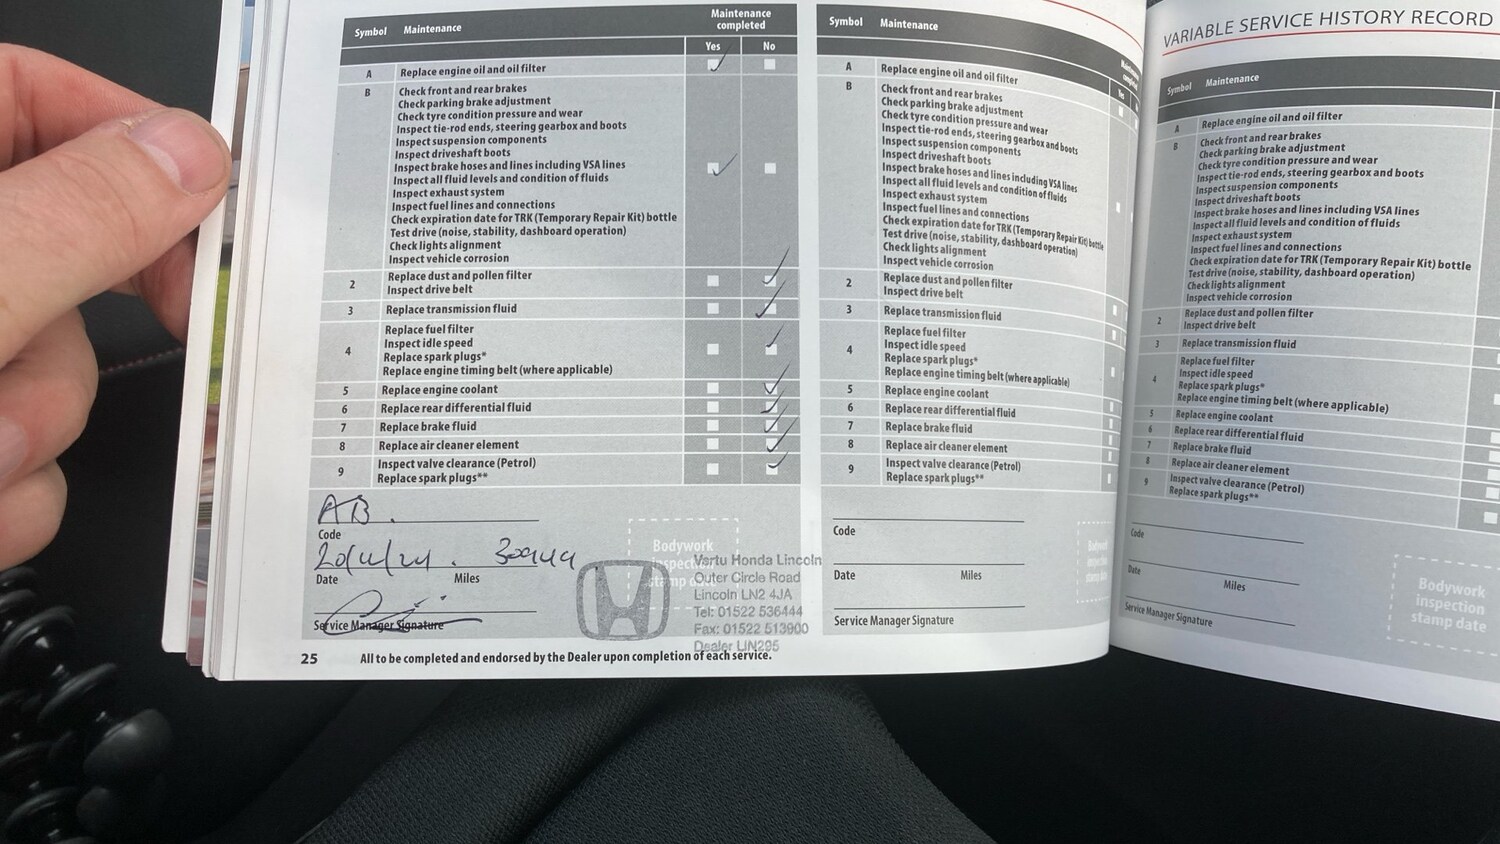 Symbol Maintenance Maintenance completed
Yes No
A Replace engine oil and oil filter
B Check front and rear brakes
Check parking brake adjustment
Check tyre condition pressure and wear
Inspect tie-rod ends, steering gearbox and boots
Inspect suspension components
Inspect driveshaft boots
Inspect brake hoses and lines including VSA lines
Inspect all fluid levels and condition of fluids
Inspect exhaust system
Inspect fuel lines and connections
Check expiration date for TRK (Temporary Repair Kit) bottle
Test drive (noise, stability, dashboard operation)
Check lights alignment
Inspect vehicle corrosion
2 Replace dust and pollen filter
Inspect drive belt
3 Replace transmission fluid
4 Replace fuel filter
Inspect idle speed
Replace spark plugs*
Replace engine timing belt (where applicable)
5 Replace engine coolant
6 Replace rear differential fluid
7 Replace brake fluid
8 Replace air cleaner element
9 Inspect valve clearance (Petrol)
Replace spark plugs**
AB.
Code
Date Miles
Service Manager Signature
Bodywork
inspection
stamp date
Vertu Honda Lincoln
Outer Circle Road
Lincoln LN2 4JA
Tel: 01522 536444
Fax: 01522 513900
Dealer LIN295
25 All to be completed and endorsed by the Dealer upon completion of each service.
Symbol Maintenance Maintenance completed
Yes
A Replace engine oil and oil filter
B Check front and rear brakes
Check parking brake adjustment
Check tyre condition pressure and wear
Inspect tie-rod ends, steering gearbox and boots
Inspect suspension components
Inspect driveshaft boots
Inspect brake hoses and lines including VSA lines
Inspect all fluid levels and condition of fluids
Inspect exhaust system
Inspect fuel lines and connections
Check expiration date for TRK (Temporary Repair Kit) bottle
Test drive (noise, stability, dashboard operation)
Check lights alignment
Inspect vehicle corrosion
2 Replace dust and pollen filter
Inspect drive belt
3 Replace transmission fluid
4 Replace fuel filter
Inspect idle speed
Replace spark plugs*
Replace engine timing belt (where applicable)
5 Replace engine coolant
6 Replace rear differential fluid
7 Replace brake fluid
8 Replace air cleaner element
9 Inspect valve clearance (Petrol)
Replace spark plugs**
Code
Date Miles
Service Manager Signature
VARIABLE SERVICE HISTORY RECORD
Symbol Maintenance
A Replace engine oil and oil filter
B Check front and rear brakes
Check parking brake adjustment
Check tyre condition pressure and wear
Inspect tie-rod ends, steering gearbox and boots
Inspect suspension components
Inspect driveshaft boots
Inspect brake hoses and lines including VSA lines
Inspect all fluid levels and condition of fluids
Inspect exhaust system
Inspect fuel lines and connections
Check expiration date for TRK (Temporary Repair Kit) bottle
Test drive (noise, stability, dashboard operation)
Check lights alignment
Inspect vehicle corrosion
2 Replace dust and pollen filter
Inspect drive belt
3 Replace transmission fluid
4 Replace fuel filter
Inspect idle speed
Replace spark plugs*
Replace engine timing belt (where applicable)
5 Replace engine coolant
6 Replace rear differential fluid
7 Replace brake fluid
8 Replace air cleaner element
9 Inspect valve clearance (Petrol)
Replace spark plugs**
Code
Date Miles
Service Manager Signature
Bodywork
inspection
stamp date